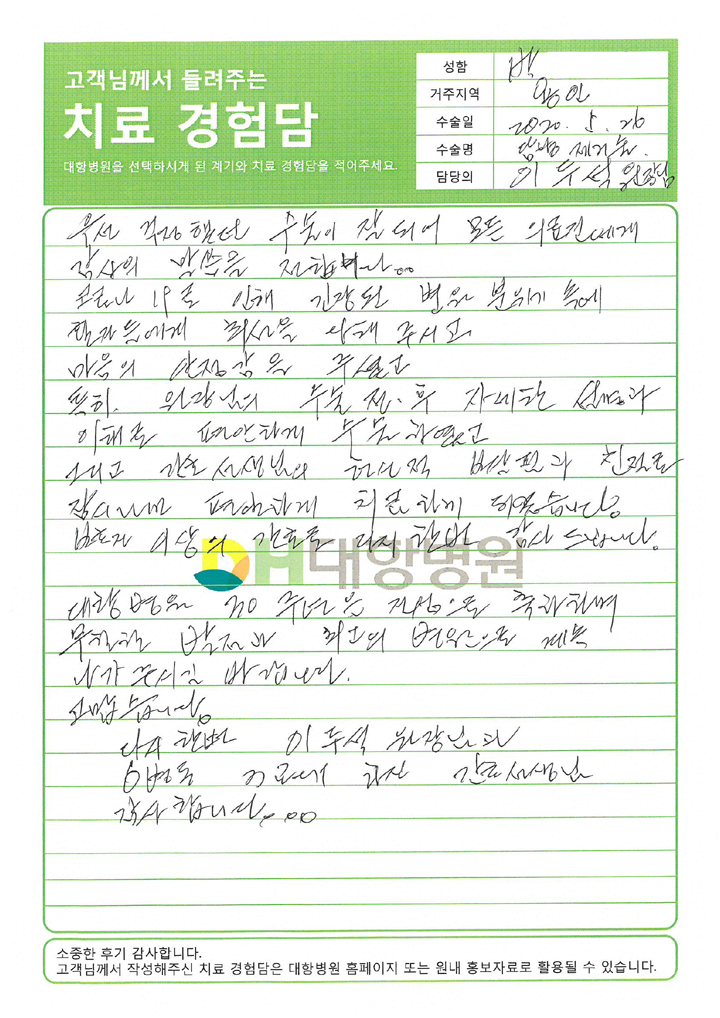 고객님께서 들려주는
치료 경험담
대항병원을 선택하시게 된 계기와 치료 경험담을 적어주세요.
성함 박
거주지역 용인
수술일 2020. 5. 26
수술명 담낭 제거술.
담당의 이두석 원장님
우선 걱정했던 수술이 잘 되어 모든 의료진에게
감사의 말씀을 전합니다..
코로나 19로 인해 긴장된 병원 분위기 속에
환자들에게 최선을 다해 주시고
마음의 안정감을 주셨고
특히. 원장님의 수술 전·후 자세한 설명과
이해로 편안하게 수술하였고
그리고 간호선생님의 헌신적 보살핌과 친절로
편안하게 치료하게 되었습니다.
보호자 이상의 간호를 다시 한번 감사 드립니다.
DH대항병원
대항병원 30주년을 진심으로 축하하며
무한한 발전과 최고의 병원으로 계속
나가주시길 바랍니다.
고맙습니다.
다시 한번 이두석 원장님과
6병동 간호선생님
감사합니다....
소중한 후기 감사합니다.
고객님께서 작성해주신 치료 경험담은 대항병원 홈페이지 또는 원내 홍보자료로 활용될 수 있습니다.